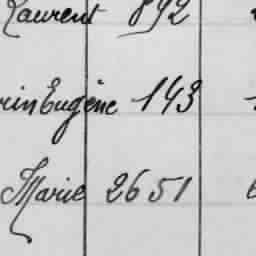 Laurent 892
rin Eugène 143
Marie 2651